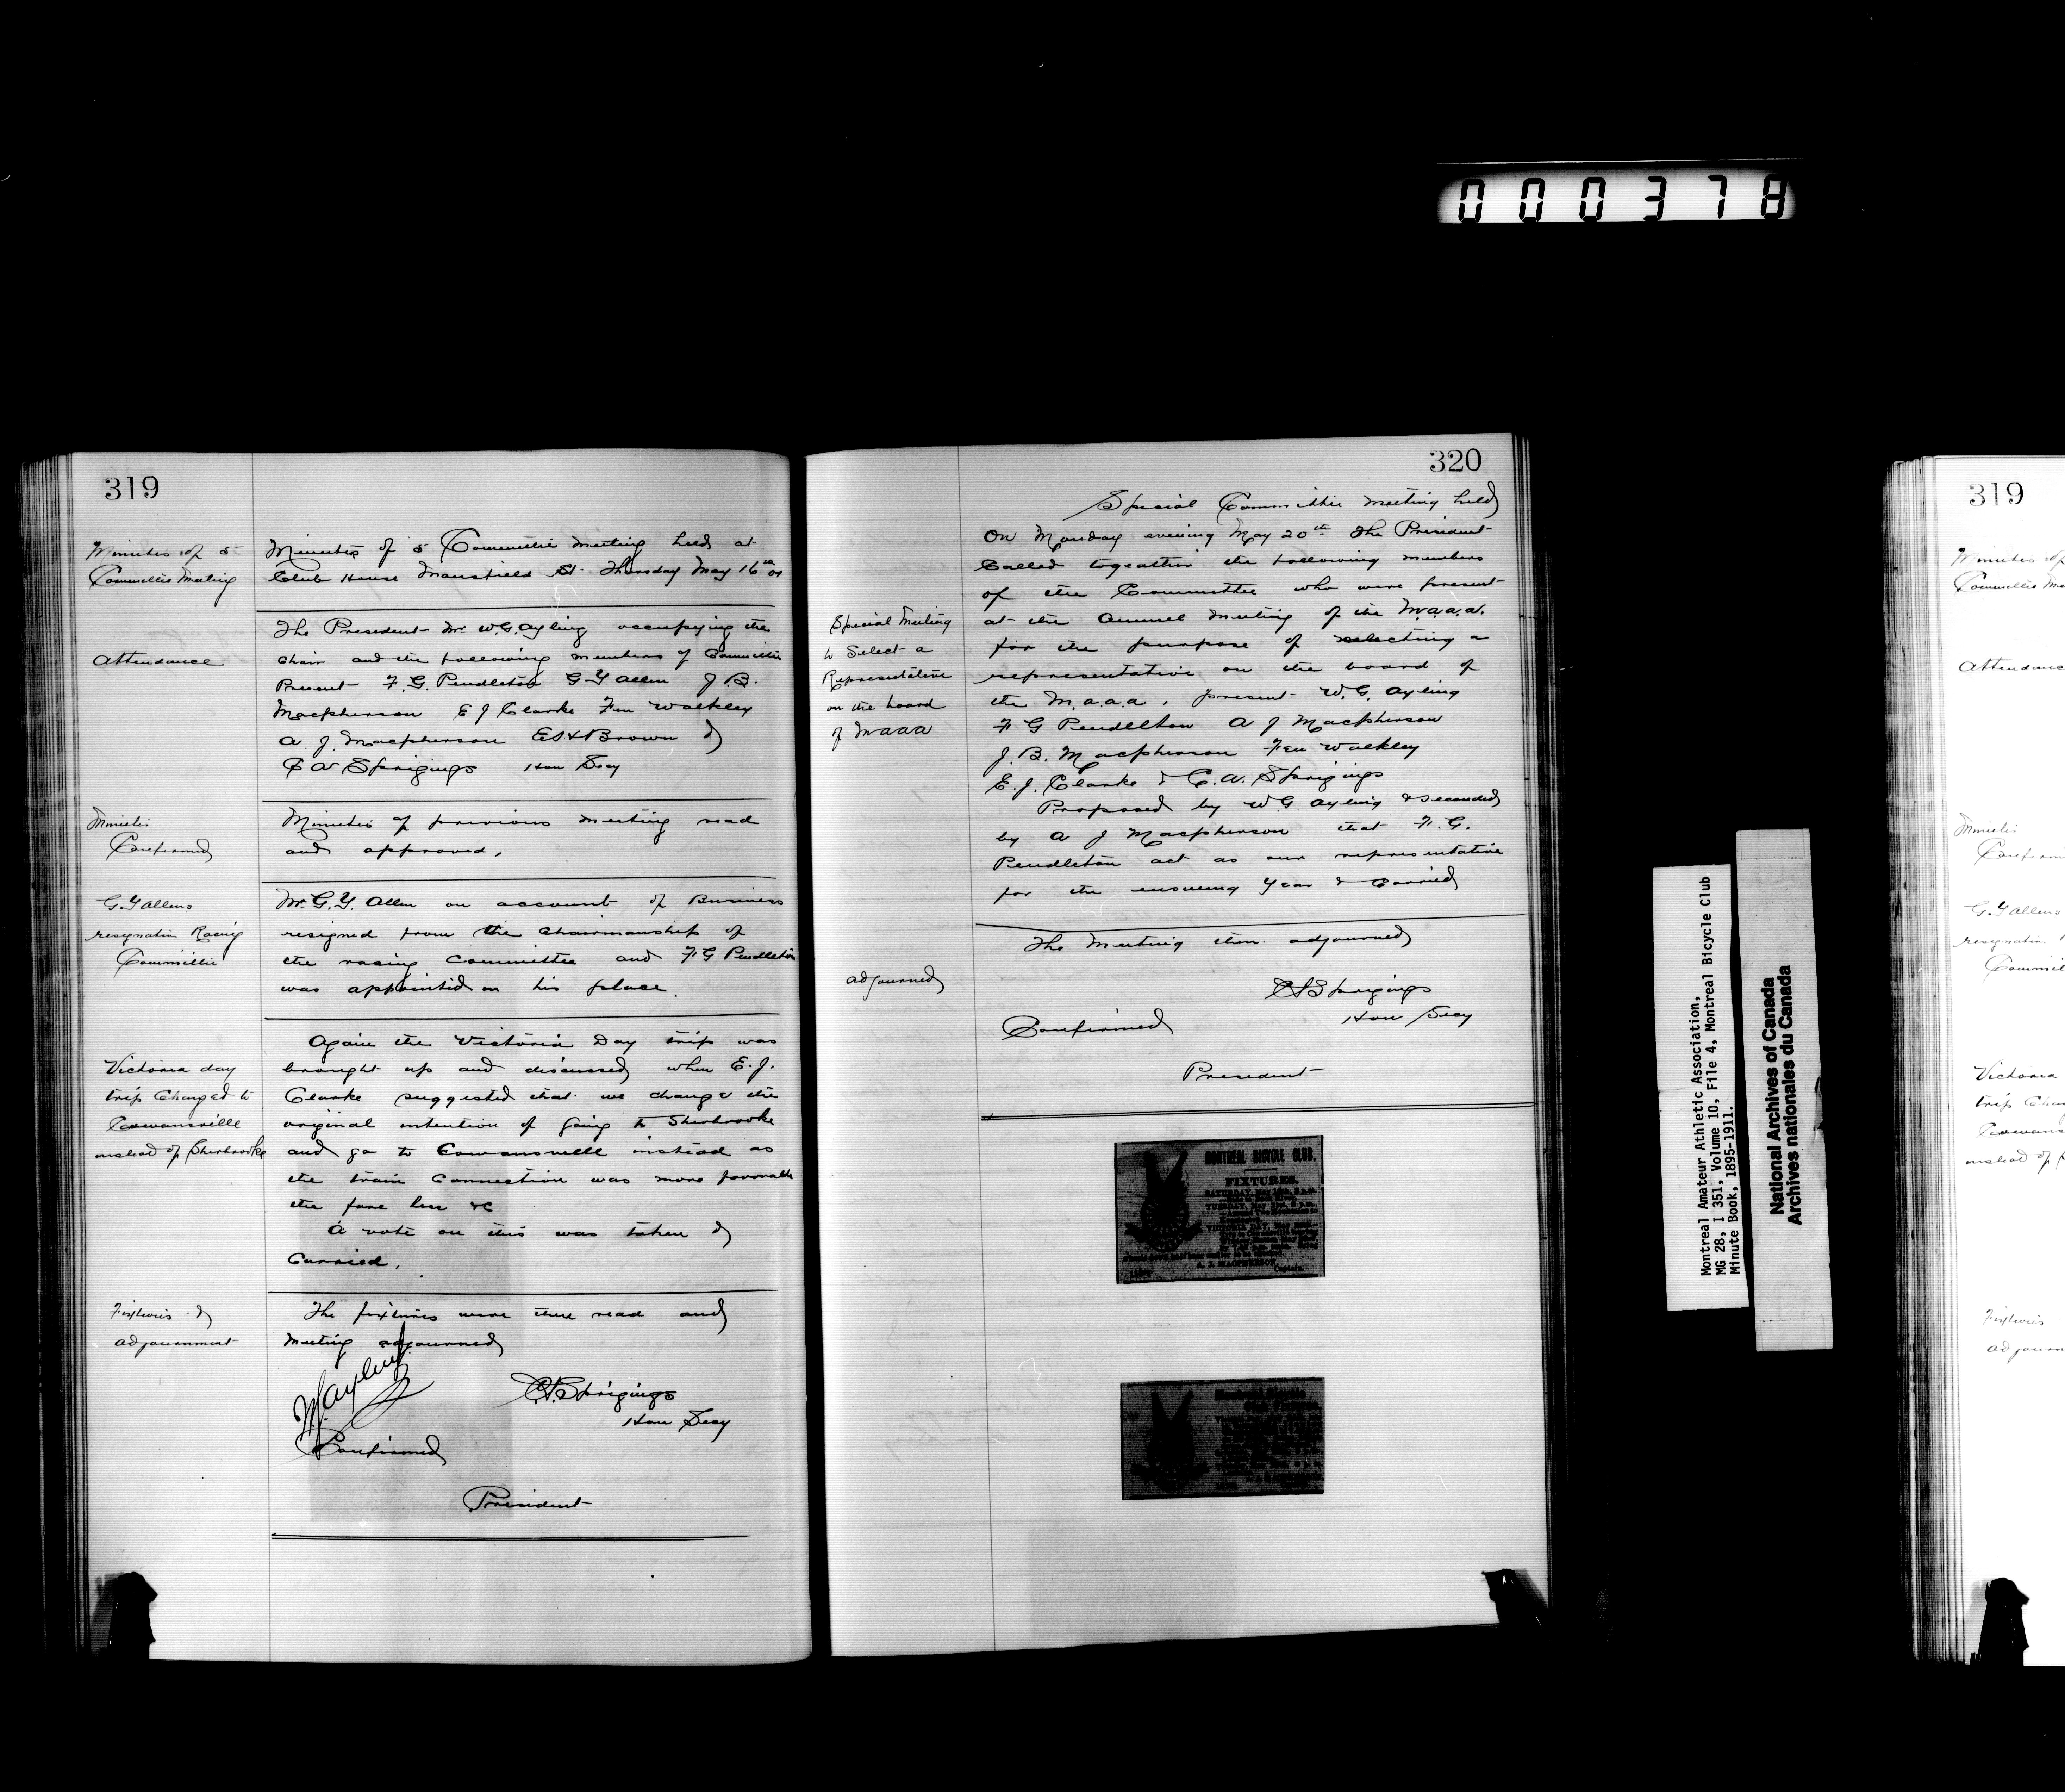 000378
319
Minutes of 5
Committee Meeting
Minutes of 5 Committee Meeting held at
Club House Mansfield St. Thursday May 16th 01
Attendance
The President Mr W.G. Ayling occupying the
chair and the following members of Committee
Present F.G. Pendleton G Y Allen J.B.
Macpherson E J Clarke Fen Walkley
A. J. Macpherson Brown &
C W Sprigings Hon Secy
Minutes
Confirmed
Minutes of previous meeting read
and approved.
G.Y Allens
resignation Racing
Committee
Mr. G.Y. Allen on account of Business
resigned from the chairmanship of
the racing committee and F G Pendleton
was appointed in his place.
Victoria day
trip Changed to
Cowansville
instead of Sherbrooke
Again the Victoria Day trip was
brought up and discussed when E.J.
Clarke suggested that we change the
original intention of going to Sherbrooke
and go to Cowansville instead as
the train connection was more favorable
the fare less &c
A vote on this was taken &
carried.
Fixtures &
adjournment
The fixtures were then read and
meeting adjourned
W G Ayling
Sprigings
Hon Secy
Confirmed
President
320
Special Committee meeting held
On Monday evening May 20th The President
Called togeather the following members
of the Committee who were present
at the Annual Meeting of the M.a.a.a.
for the purpose of selecting a
representative on the board of
the M.a.a.a. present W.G. Ayling
F G Pendelton A J Macpherson
J. B. Macpherson Fen Walkley
E. J. Clarke & C. W. Sprigings
Special Meeting
to Select a
Representative
on the board
of Maaa
Proposed by W G. Ayling & seconded
by A J Macpherson that F. G.
Pendleton act as our representative
for the ensuing year & Carried
The Meeting then adjourned
adjourned
Sprigings
Hon Secy
Confirmed
President
MONTREAL BICYCLE CLUB.
FIXTURES.
SATURDAY, May
TUESDAY, May 21st, 8 p.m.
VICTORIA DAY, May
A. J. MACPHERSON,
Captain.
Montreal Amateur Athletic Association,
MG 28, I 351, Volume 10, File 4, Montreal Bicycle Club
Minute Book, 1895-1911.
National Archives of Canada
Archives nationales du Canada
319
Minutes of
Attendance
Minutes
G.Y Allens
resignation
Victoria
trip
instead of
Fixtures